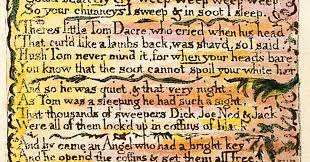 So your chimneys I sweep & in soot I sleep.
Theres little Tom Dacre who cried when his head
That curld like a lambs back, was shav'd, so I said.
Hush Tom never mind it, for when your heads bare,
You know that the soot cannot spoil your white hair
And so he was quiet, & that very night.
As Tom was a sleeping he had such a sight
That thousands of sweepers Dick, Joe, Ned, & Jack
Were all of them lock'd up in coffins of black,
And by came an Angel who had a bright key
And he open'd the coffins & set them all free.